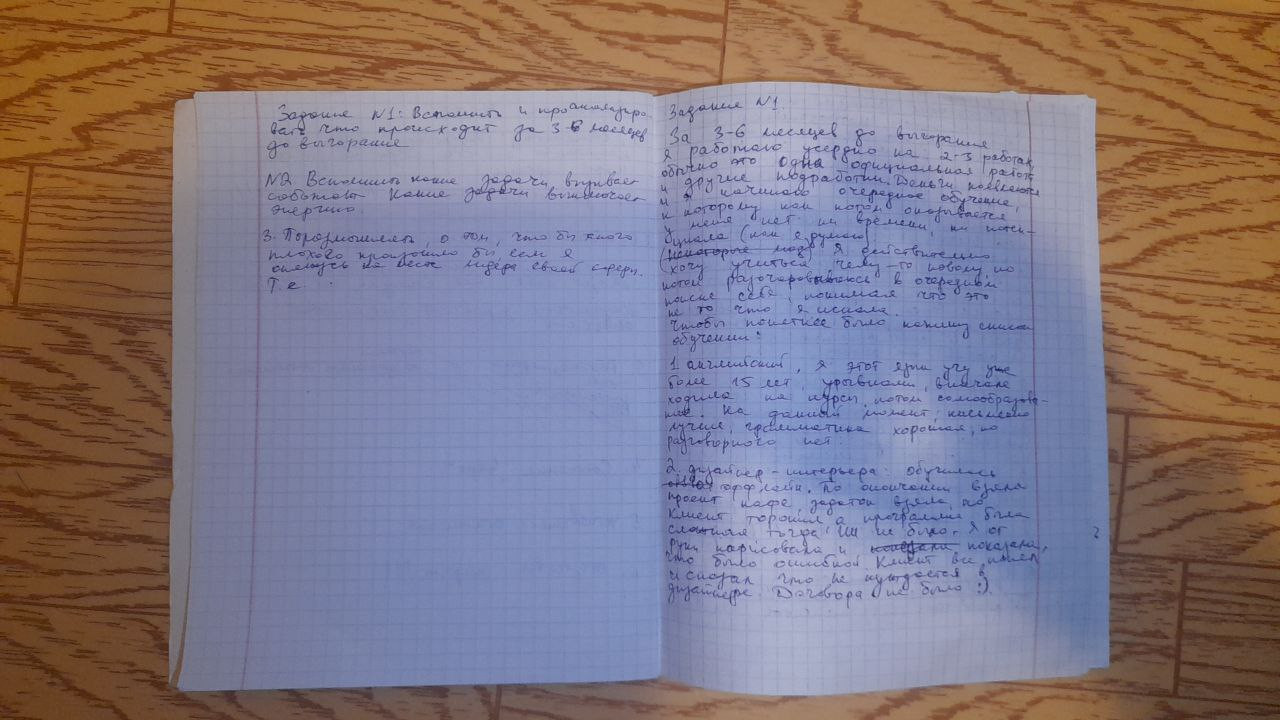 Задание №1: Вспомнить и проанализиро-
вать что происходит за 3-6 месяцев
до выгорания
№2 Вспомнить какие задачи
какие задачи
энергию.
3. Поразмышлять, о том, что бы такого
плохого произошло бы если я
окажусь на месте лидера своей сферы.
Т.е
Задание №1.
За 3-6 месяцев до выгорания
я работаю усердно на 2-3 работах
обычно это одна официальная работа
и другие подработки. Деньги появляются
и я начинаю очередное обучение,
к которому как потом оказывается
у меня нет ни времени, ни потен-
циала (как я думаю)
Я действительно
хочу учиться чему-то новому но
потом разочаровываюсь в очередном
поиске себя, понимая что это
не то что я искала.
Чтобы понятнее было напишу список
обучений:
1. английский, я этот язык учу уже
более 15 лет, урывками, вначале
ходила на курсы, потом самообразова-
ние. На данный момент, письменно
лучше, грамматика хорошая, но
разговорного нет.
2. дизайнер-интерьера: обучилась
оффлайн. По окончании взяла
проект кафе, задаток взяла, но
клиент торопил а программа была
сложная тогда ИИ не было. Я от
руки нарисовала и показала,
что было ошибкой. Клиент все понял
и сказал что не нуждается в
дизайнере. Договора не было :).